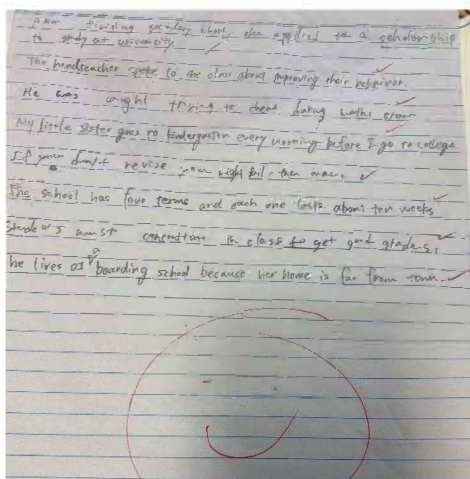 finishing secondary school, she applied to a scholarship
to study at university
The headteacher spoke to the class about improving their behavior.
He was caught trying to cheat during maths exam
My little sister goes to kindergarten every morning before I go to college
If your don't revise your might fail the exam.
The school has four terms and each one lasts about ten weeks
Students must in class to get good grades.
he lives at a boarding school because her home is far from town.